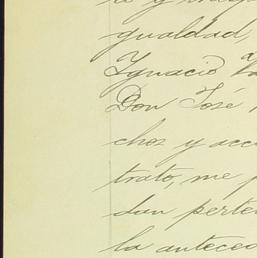 gualdad,
Ignacio
Don José
chos y acc
trato, me p
dan perte
la anteced